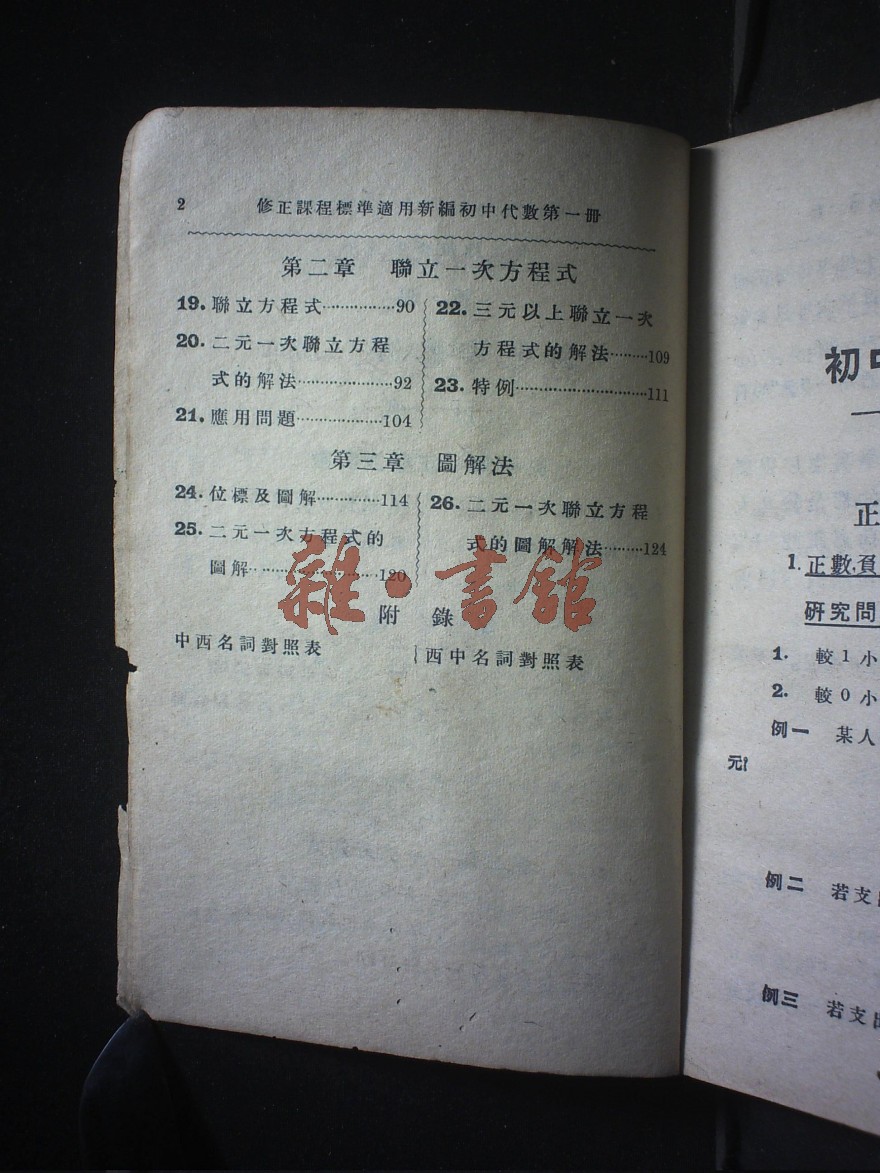 2 修正課程標準適用新編初中代數第一冊
第二章 聯立一次方程式
19. 聯立方程式··············90
20. 二元一次聯立方程
式的解法···················92
21. 應用問題··················104
22. 三元以上聯立一次
方程式的解法········109
23. 特例···························111
第三章 圖解法
24. 位標及圖解·············114
25. 二元一次方程式的
圖解·························120
26. 二元一次聯立方程
式的圖解解法········124
附錄
中西名詞對照表
西中名詞對照表
雜·書館
初中
正
1. 正數,負
研究問
1. 較1小
2. 較0小
例一 某人
元?
例二 若支出
例三 若支出